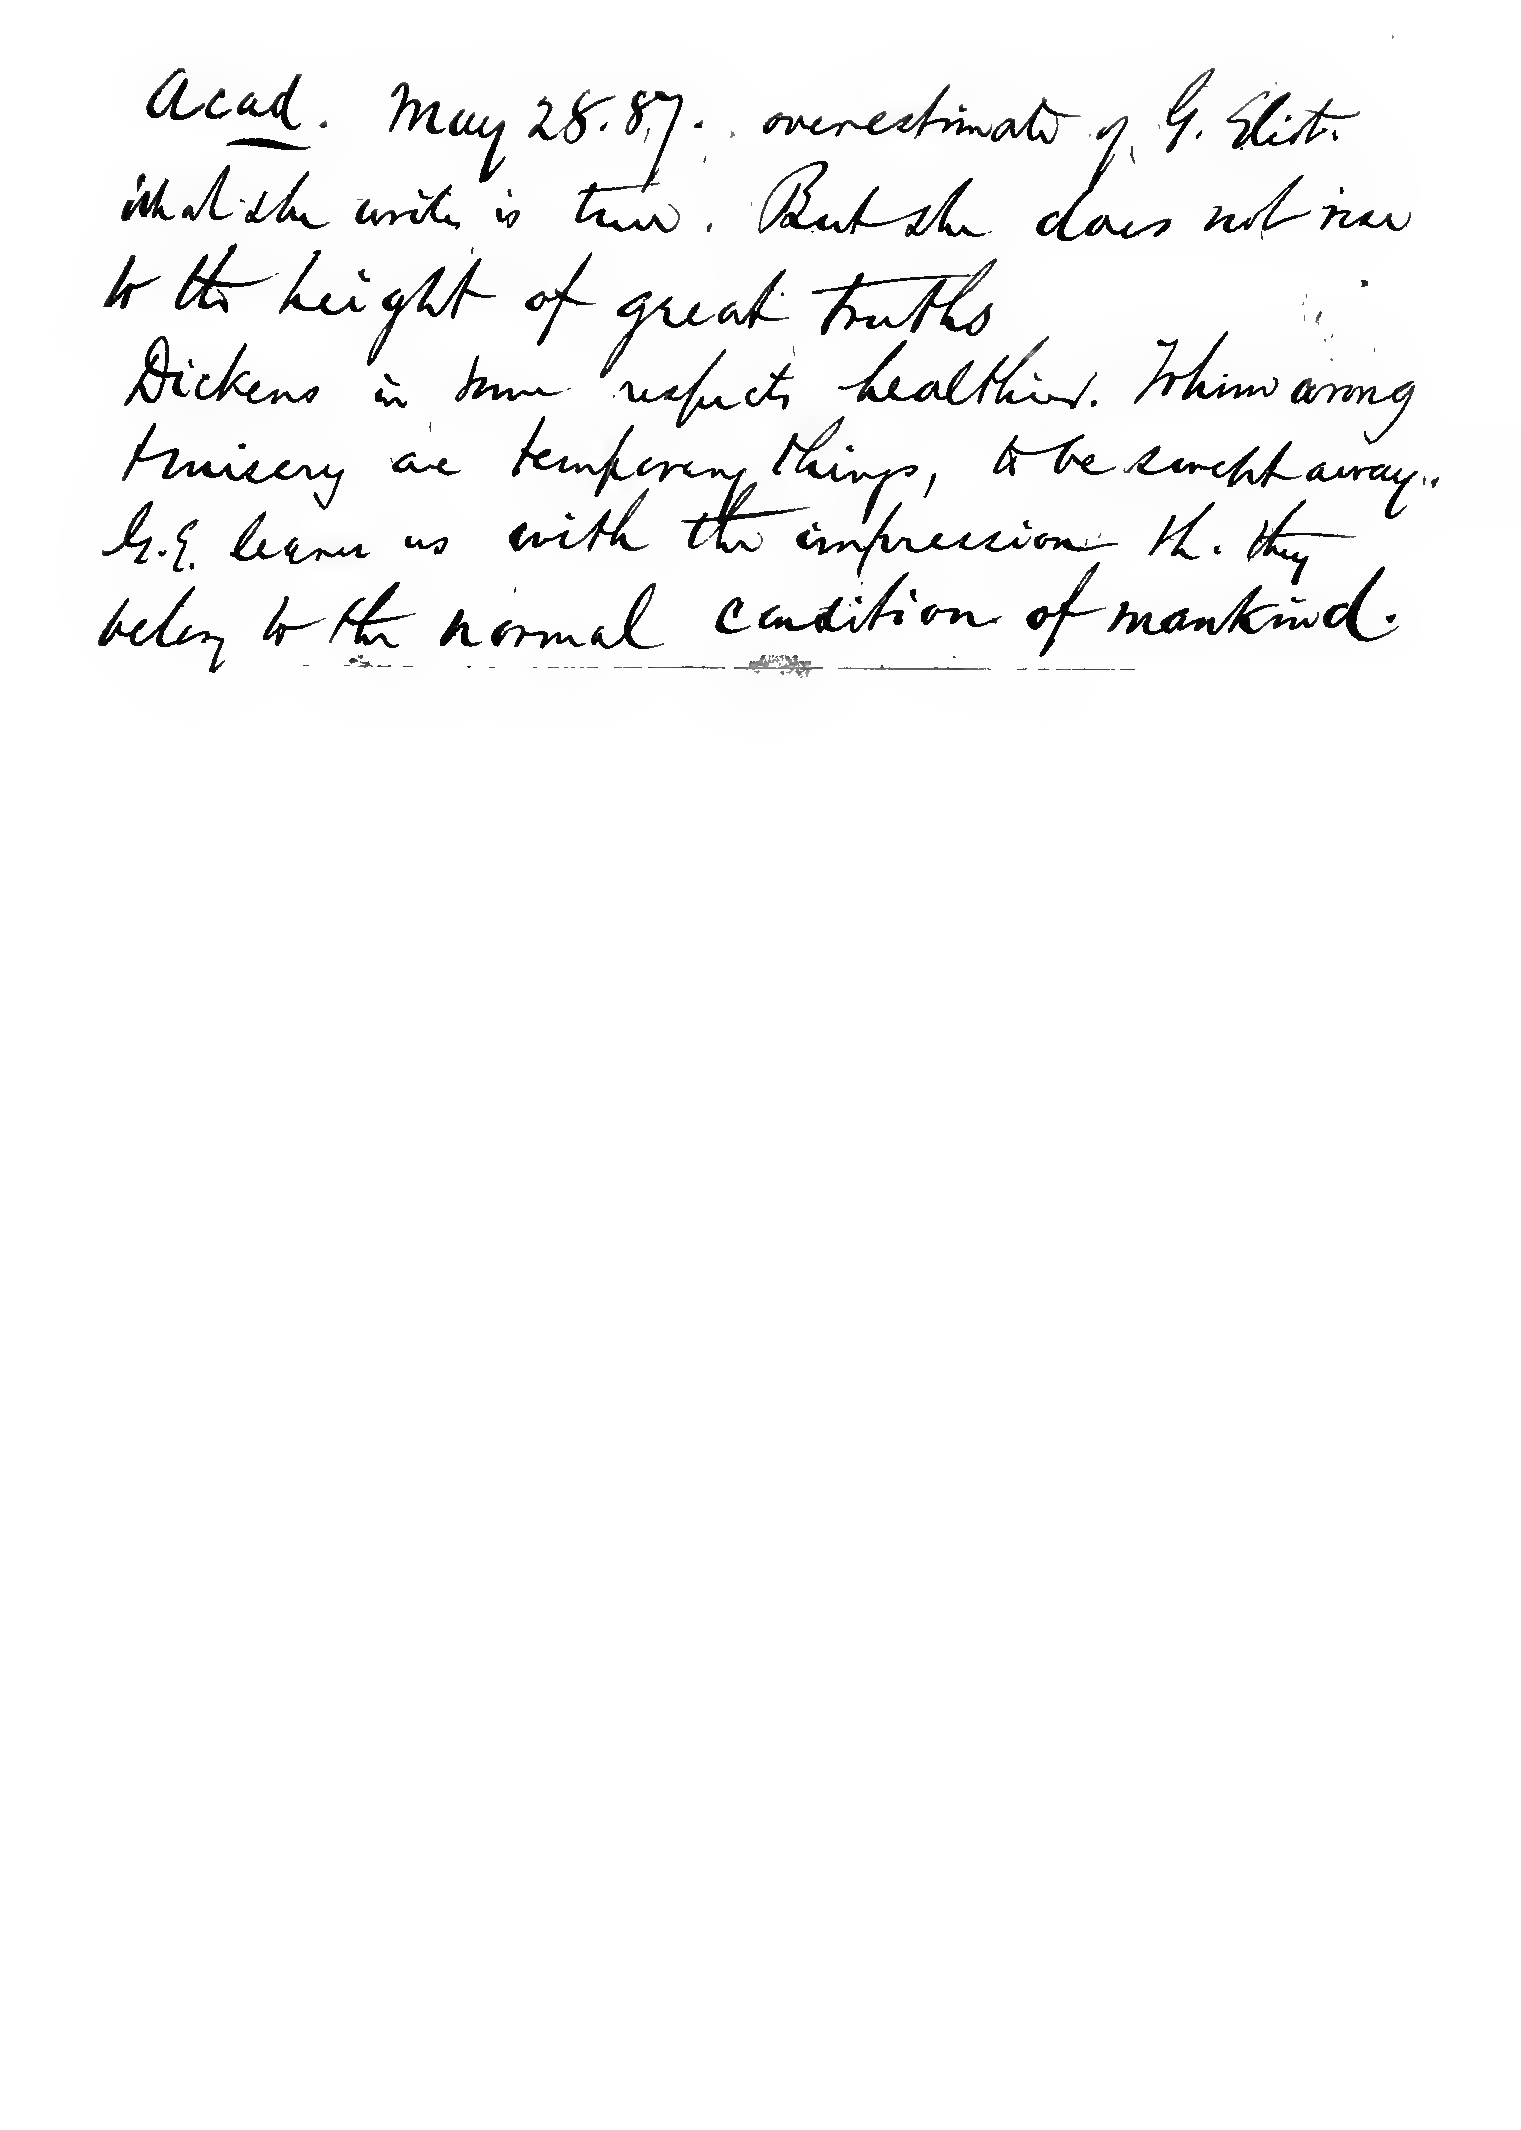 Acad. May 28. 87. overestimate of G. Eliot.
What she writes is true. But she does not rise
to the height of great truths
Dickens in some respects healthier. To him wrong
+ misery are temporary things, to be swept away.
G.E. leaves us with the impression th. they
belong to the normal condition of mankind.